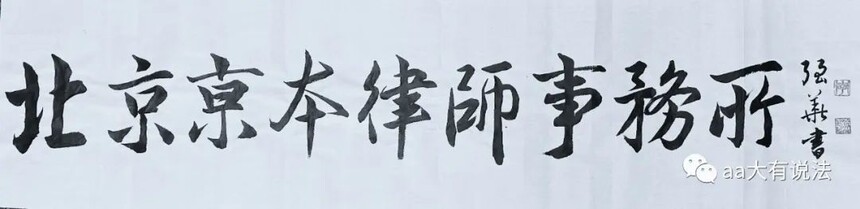 北京亰本律師事務所
强華書
aa大有说法